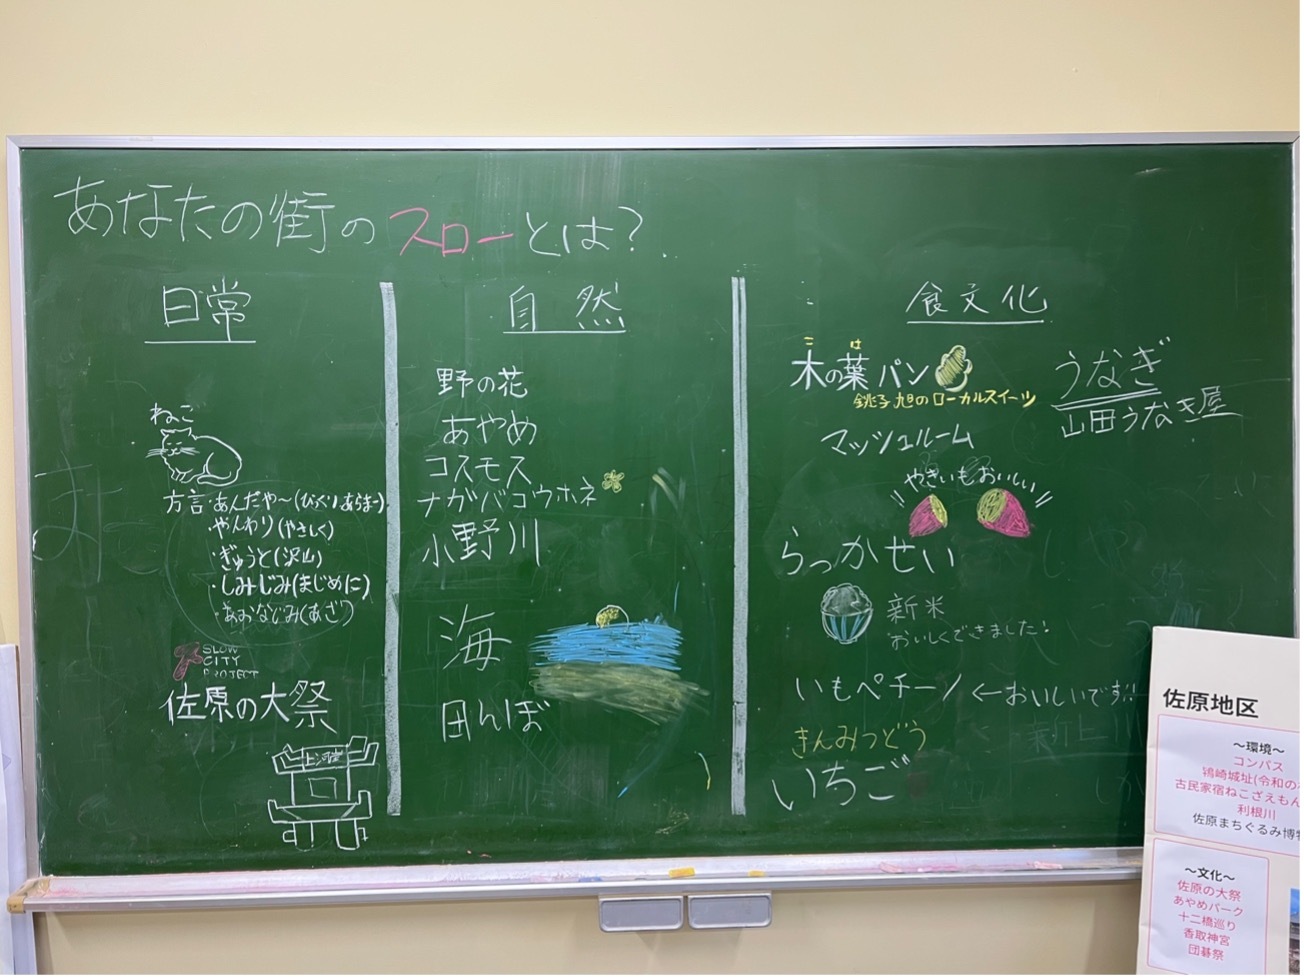 あなたの街のスローとは？
日常
ねこ
方言・あんだや〜(びっくり,あらまー)
・やんわり(やさしく)
・ぎゅうと(沢山)
・しみじみ(まじめに)
・あおなじみ(あざ)
SLOW
CITY
PROJECT
佐原の大祭
上河岸
自然
野の花
あやめ
コスモス
ナガバコウホネ
小野川
海
田んぼ
食文化
こ は
木の葉パン
銚子 旭のローカルスイーツ
うなぎ
山田うなぎ屋
マッシュルーム
やきいもおいしい
らっかせい
新米
おいしくできました！
いもペチーノ ←おいしいです！！
きんみつどう
いちご
佐原地区
〜環境〜
コンパス
鴇崎城址(令和の
古民家宿ねこざえもん
利根川
佐原まちぐるみ博物
〜文化〜
佐原の大祭
あやめパーク
十二橋巡り
香取神宮
団碁祭